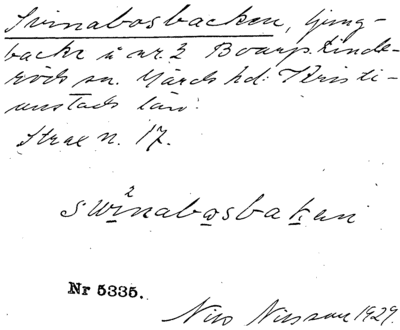 Svinabosbacken, ljung-
backe å nr. 2 Boarp. Linde-
röds sn. Gärds hd. Kristi-
anstads län.
Strax n. 17.
2
swinabosbaken
Nr 5335.
Nils Nilsson 1929.